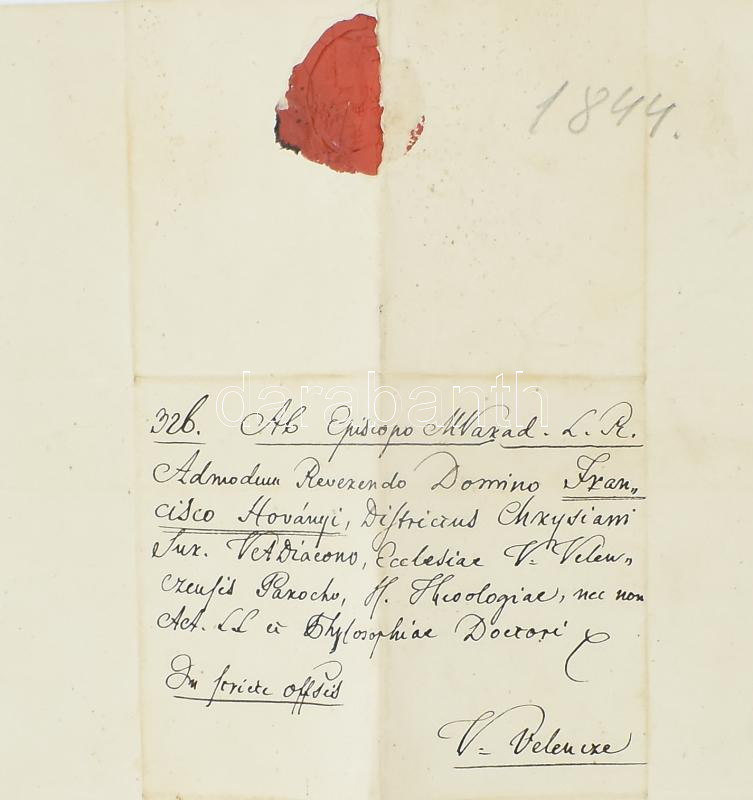 1844.
darabanth
326. Ab Episcopo MVarad. L. R.
Admodum Reverendo Domino Fran„
cisco Hoványi, Districtus Chrysiani
Sur. VetDiacono, Ecclesiae V= Velen„
czensis Parocho, Theologiae, nec non
Act. LL et Phylosophiae Doctori
In stricte offsis
V= Velencze